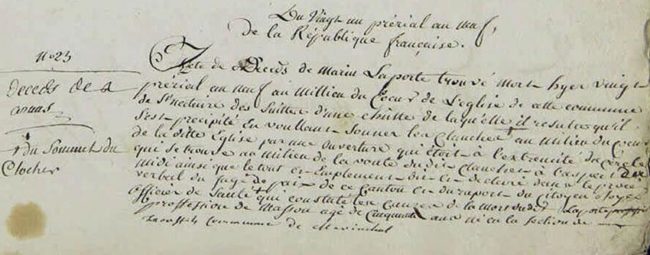 Du Vingt un prérial an neuf,
de la République française.
N° 23
Deceds de
+ du Sommet du
Clocher
Acte de Deceds de marin Laporte trouvé mort hyer vingt
prérial an neuf au Millieu du Coeur de Leglise de cette commune
de St nectaire des Suittes d'une chûtte de laquelle il resulte qu'il
s'est precipité En voullant Sonner les Clauches + au Milieu du Coeur
de la ditte Eglise par une ouverture qui étoit à l'extremité du
qui se trouve au milieu de la voute du dit Clauches à
midi ainsi que le tout Emplement dit Et declaré dans le proce
verbeil du juge de paix de ce Canton Et du raport du Citoyen
officier de Santé qui constate les Causes de la mort dudit Laporte
proffession de Masson age de Cinquante ans né a la section de
Commune de